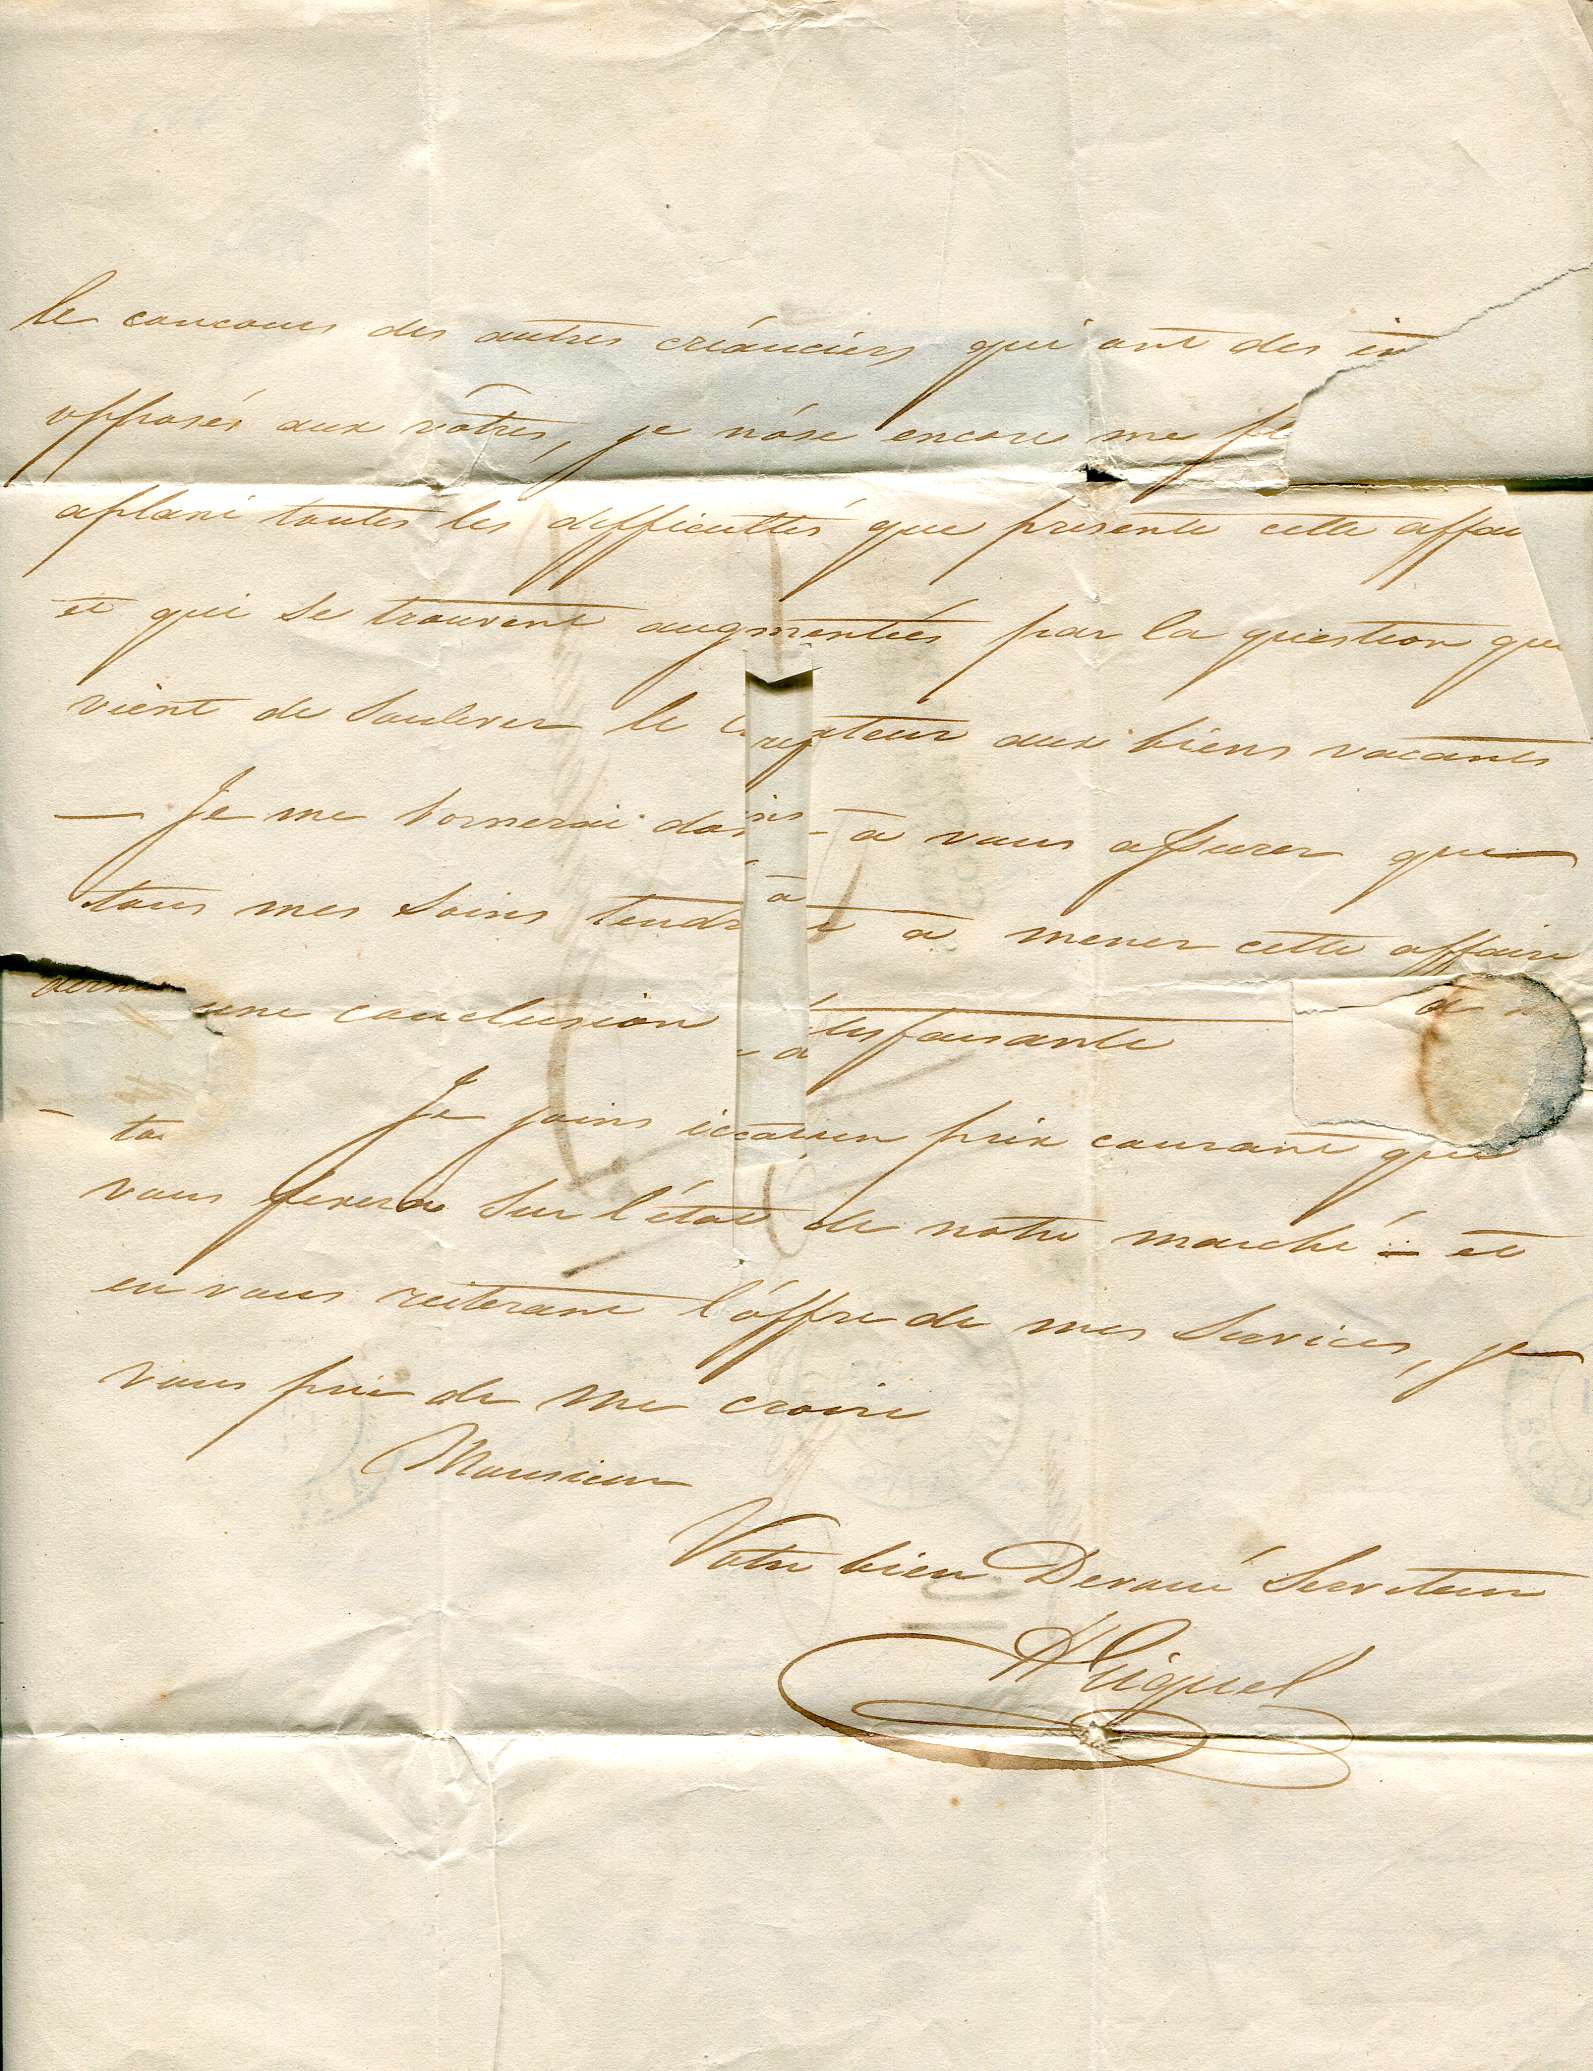 le concours des autres créanciers qui ont des in
opposés aux vôtres, je n'óse encore me fl
aplani toutes les difficultés que présente cette affai
et qui se trouvent augmentées par la question que
vient de soulever le teur aux biens vacants
— Je me bornerai à vous assurer que
tous mes soins tend à mener cette affaire
une conclusion tisfaisante
Je joins un prix courant qui
vous fixera sur l'état de notre marché — et
en vous réiterant l'óffre de mes services, je
vous prie de me croire
Monsieur
Votre bien Devoué Serviteur